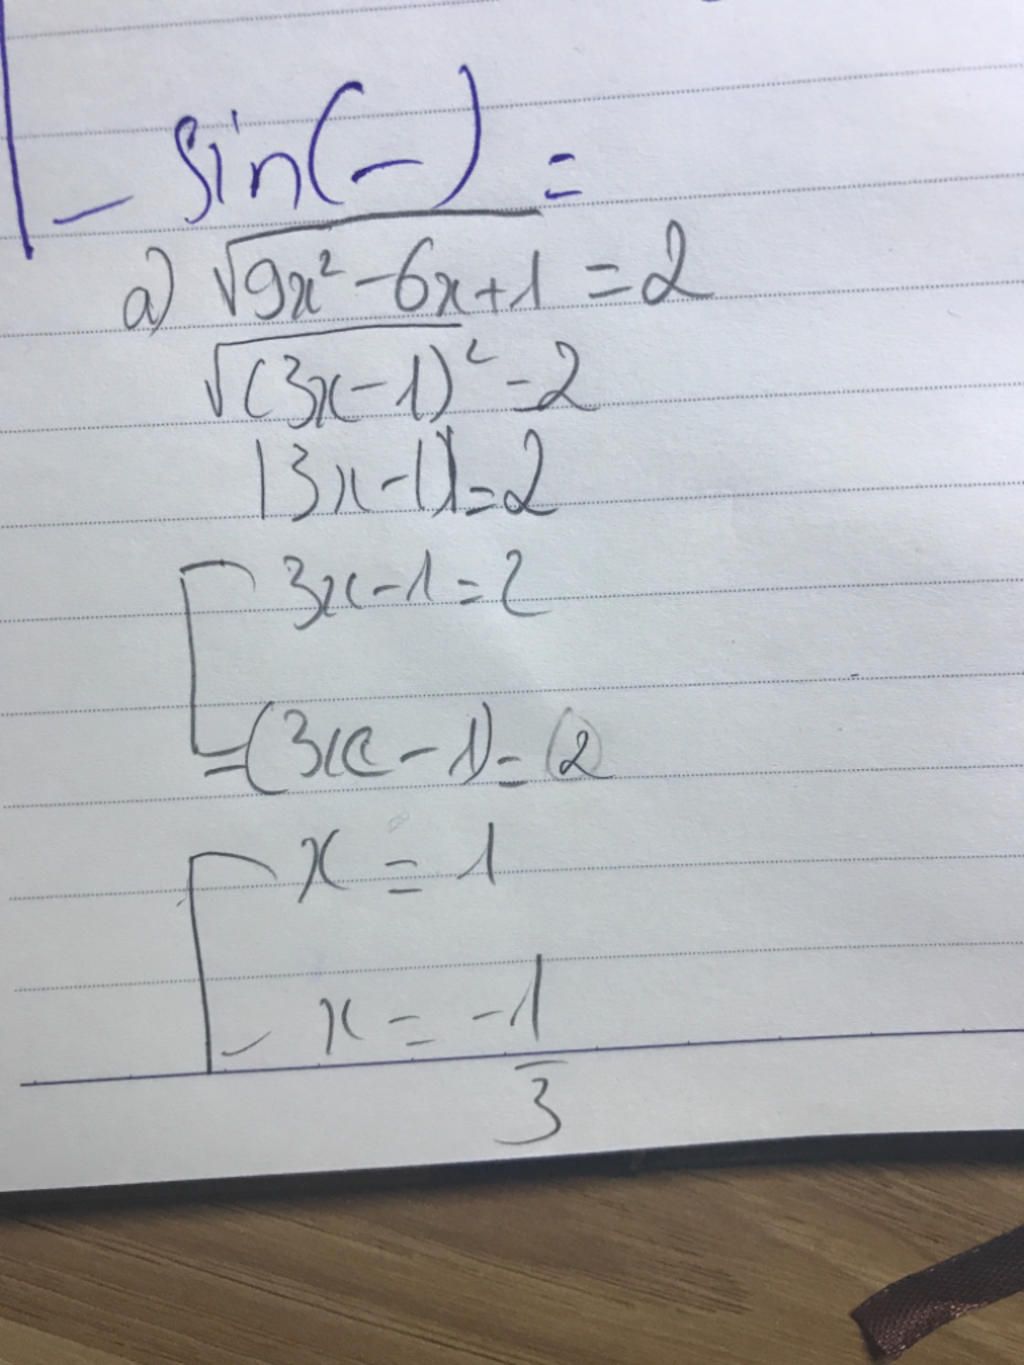 - sin(-) =
a) √(9x² - 6x + 1) = 2
√(3x - 1)² = 2
|3x - 1| = 2
[ 3x - 1 = 2
-(3x - 1) = 2
[ x = 1
x = -1/3